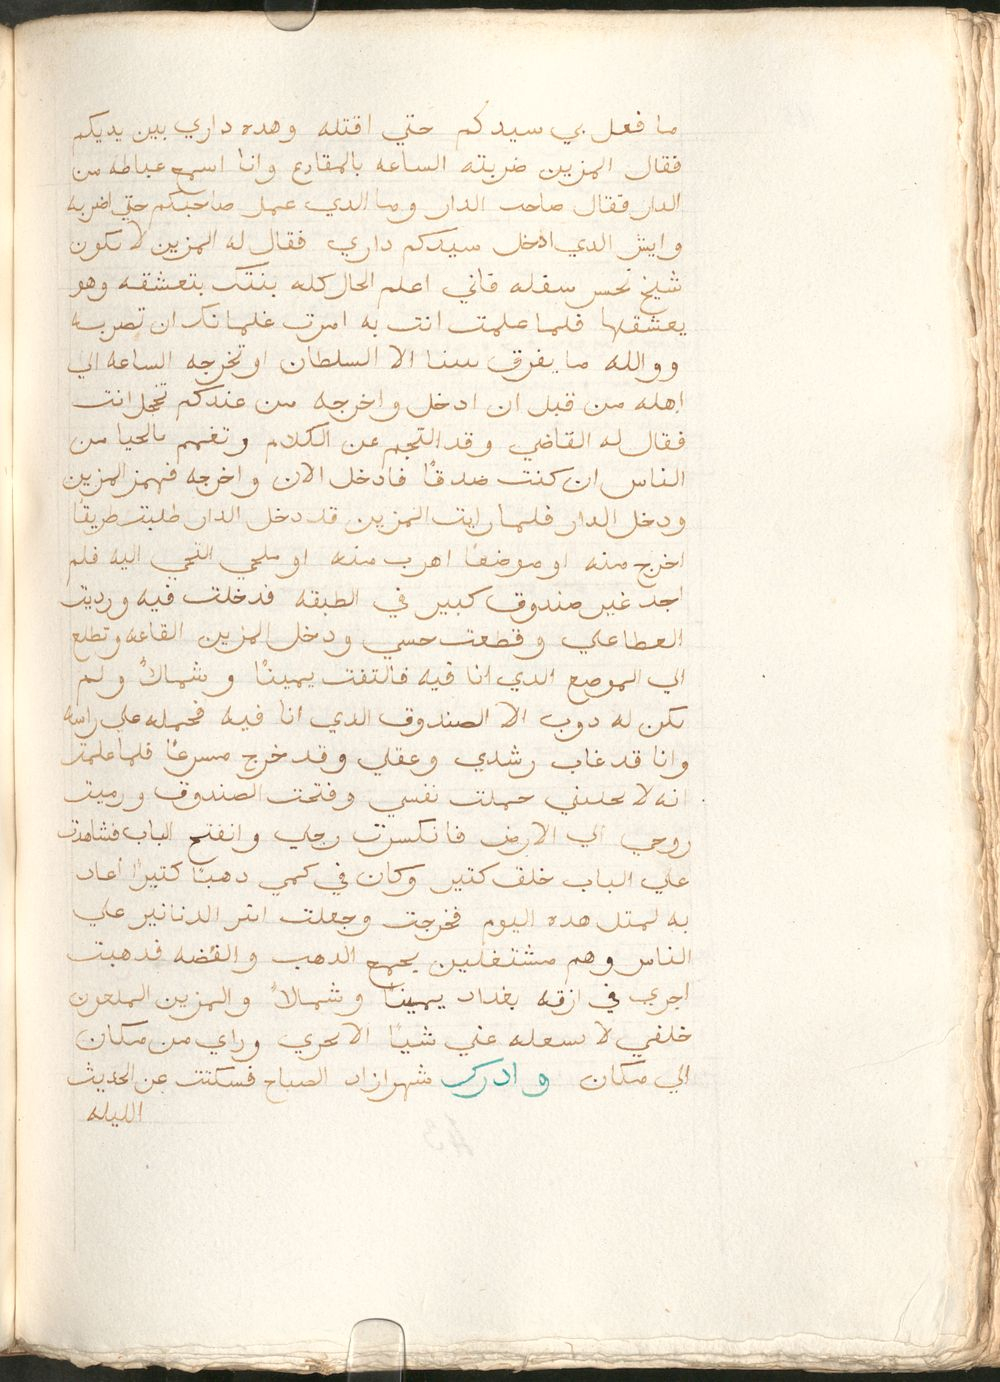 ما فعل بي سيدكم حتي اقتله وهده داري بين يديكم
فقال المزين ضربته الساعه بالمقارع وانا اسمع عياطه من
الدار فقال صاحب الدار وما الدي عمل صاحبكم حتي اضربه
وايش الدي ادخل سيدكم داري فقال له المزين لا تكون
شيخ نحس سفله فاني اعلم الحال كله بنتك بتعشقه وهو
يعشقها فلما علمت انت به امرت غلمانك ان تضربه
ووالله ما يفرق بيننا الا السلطان او تخرجه الساعه الي
اهله من قبل ان ادخل واخرجه من عندكم تخجل انت
فقال له القاضي وقد التجم عن الكلام وتغمم بالحيا من
الناس ان كنت صدقًا فادخل الان واخرجه فهمز المزين
ودخل الدار فلما رايت المزين قد دخل الدار طلبت طريقًا
اخرج منه او موضعًا اهرب منه او ملجي التجي اليه فلم
اجد غير صندوق كبير في الطبقه فدخلت فيه ورديت
الغطا علي وقطعت حسي ودخل المزين القاعه وتطلع
الي الموضع الدي انا فيه فالتفت يمينًا وشمالاً ولم
يكن له دوب الا الصندوق الدي انا فيه فحمله علي راسه
وانا قد غاب رشدي وعقلي وقد خرج مسرعًا فلما علمت
انه لا يخليني حملت نفسي وفتحت الصندوق ورميت
روحي الي الارض فانكسرت رجلي وانفتح الباب فشاهدت
علي الباب خلق كتير وكان في كمي دهبًا كتيرًا أعاد
به لمتل هده اليوم فخرجت وجعلت انتر الدنانير علي
الناس وهم مشتغلين بجمع الدهب والفضه فدهبت
اجري في ازقه بغداد يمينًا وشمالاً والمزين الملعون
خلفي لا يشغله عني شيًا الا يجري وراي من مكان
الي مكان وادرك شهرازاد الصباح فسكتت عن الحديث
الليله